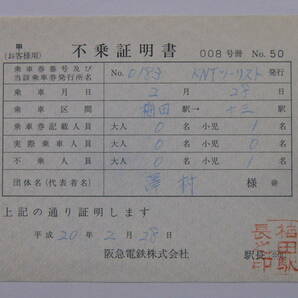 甲
(お客様用) 不乗証明書 008号冊 No.50
乗車券番号及び当該乗車券発行所名 No. 0183 KNTツーリスト 発行
乗車月日 2月28日
乗車区間 梅田駅→十三駅
乗車券記載人員 大人 0名 小児 1名
実際乗車人員 大人 0名 小児 0名
不乗人員 大人 0名 小児 1名
団体名(代表者名) 様
上記の通り証明します
平成20年2月28日
阪急電鉄株式会社 駅長
梅田駅
長之印